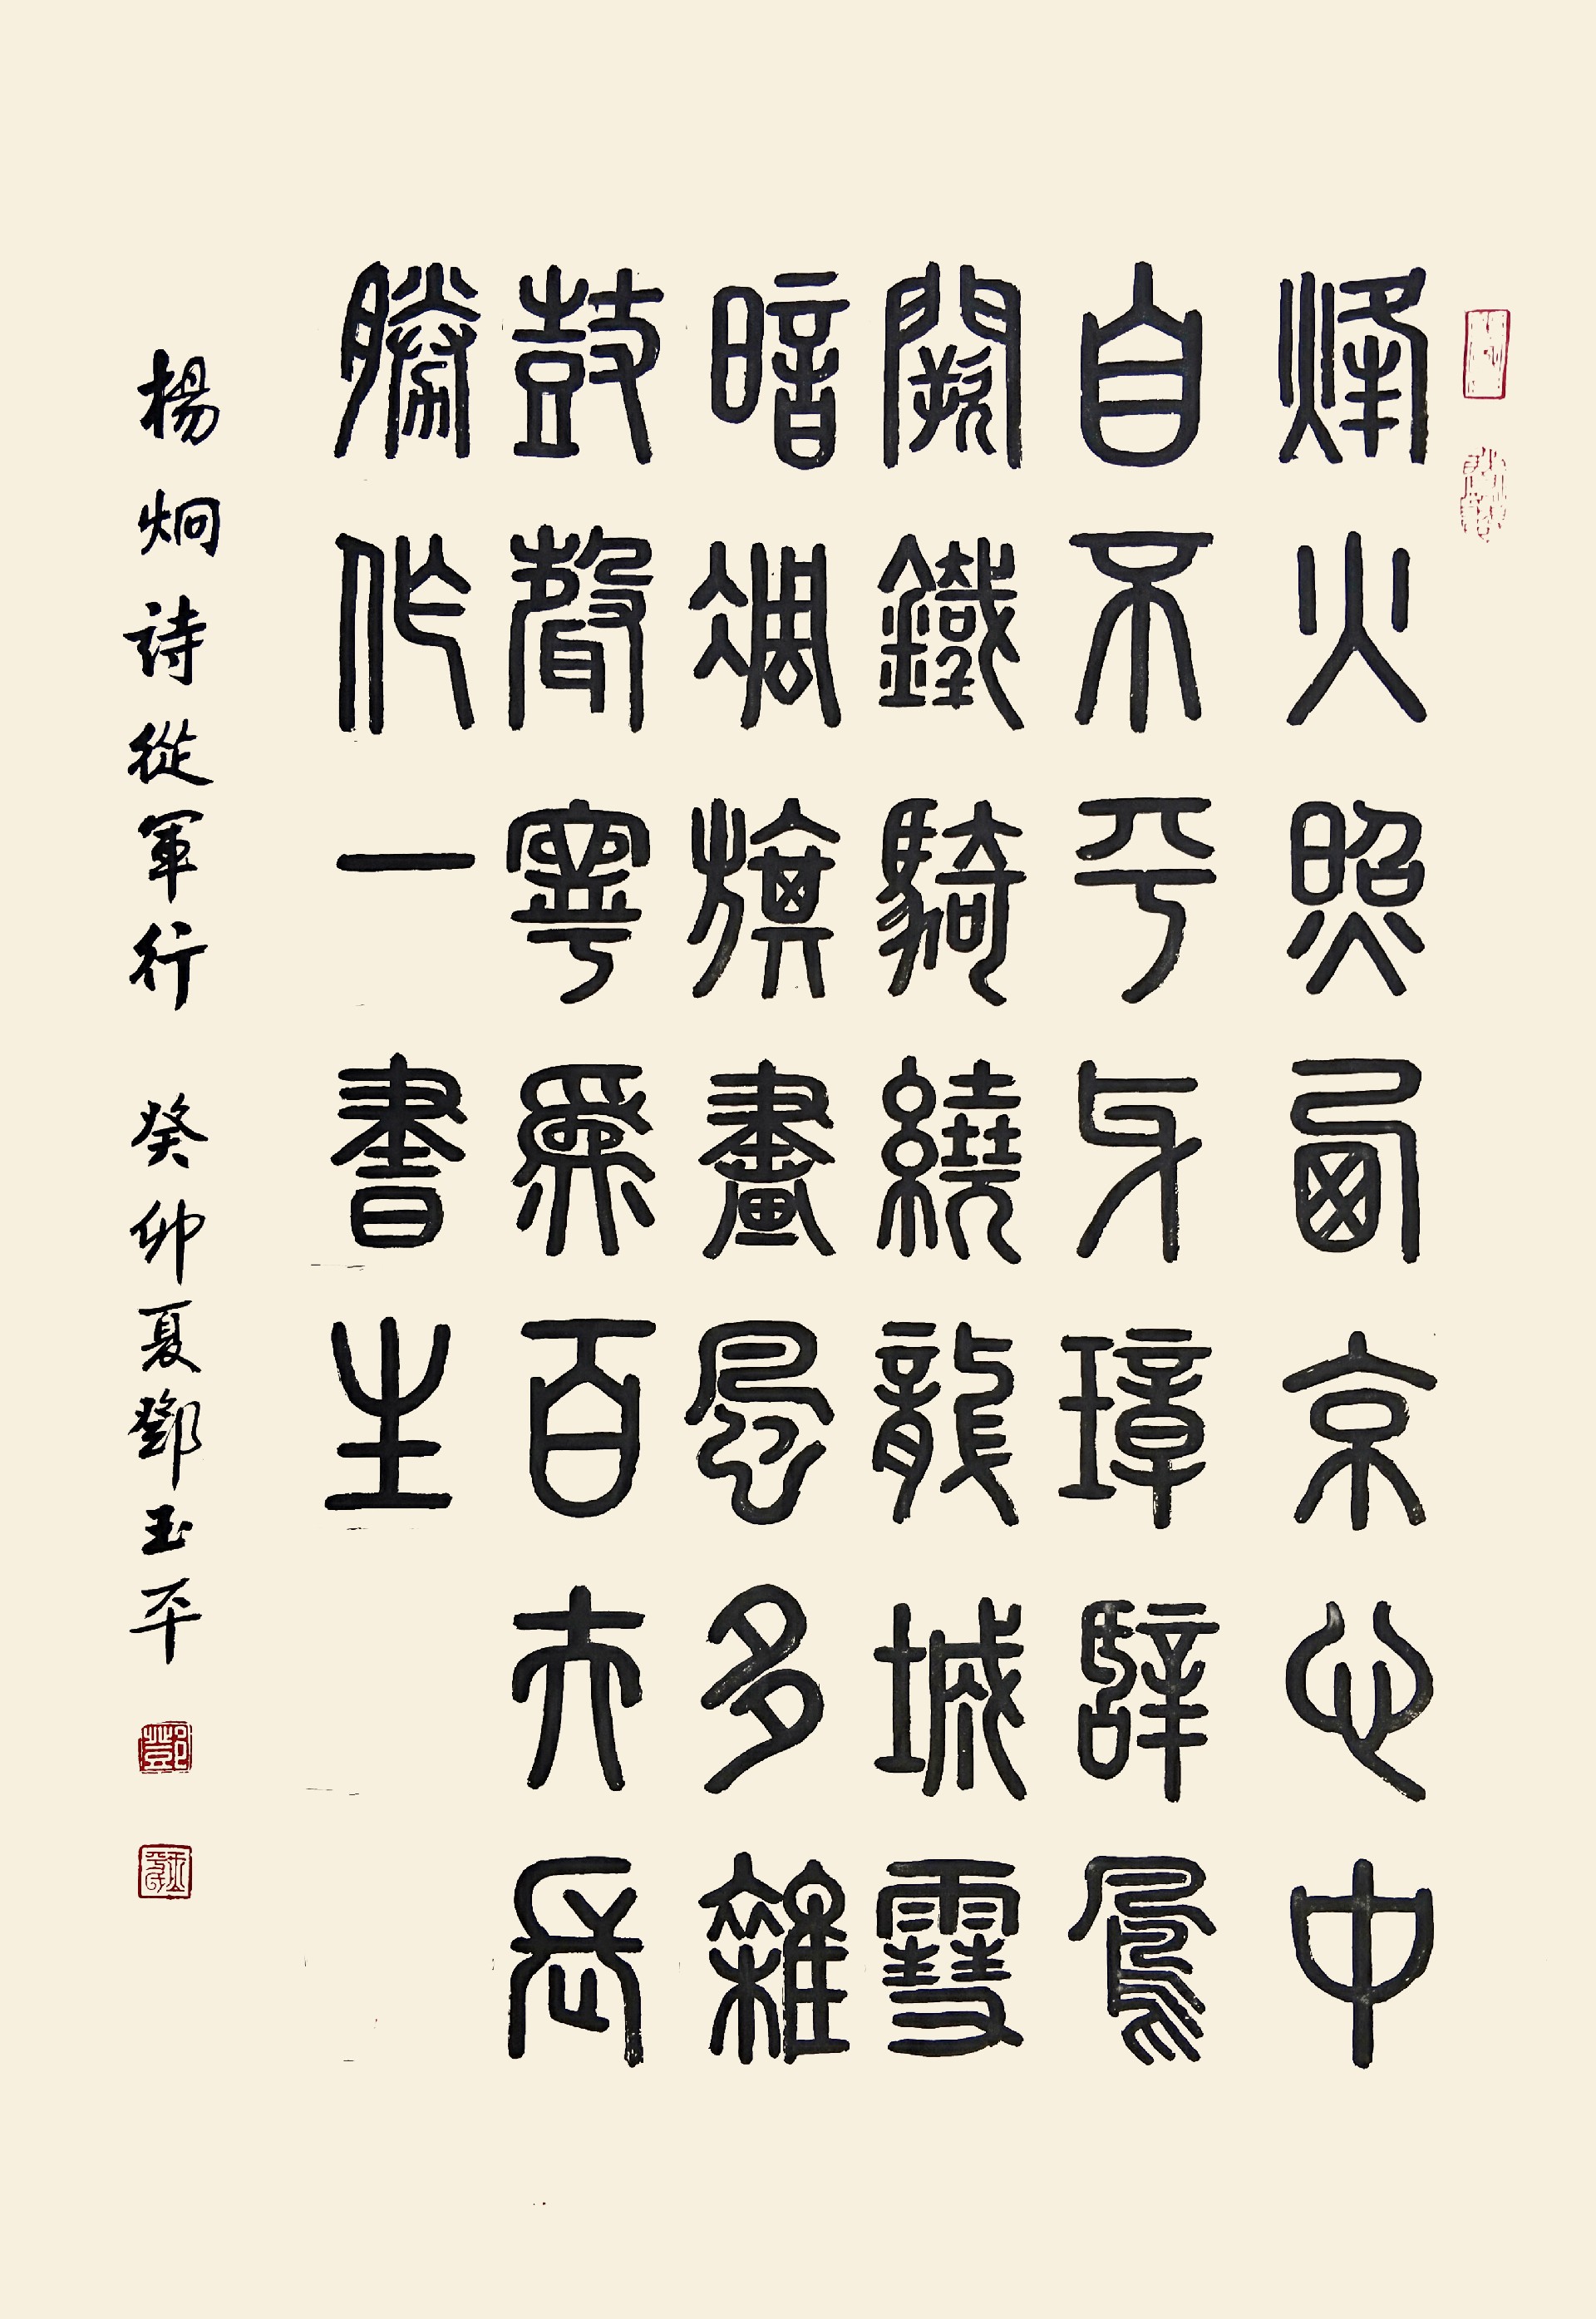 烽火照西京心中
自不平牙璋辭鳳
闕鐵騎繞龍城雪
暗凋旗畫風多雜
鼓聲寧為百夫長
勝作一書生
楊炯詩從軍行 癸卯夏鄧玉平